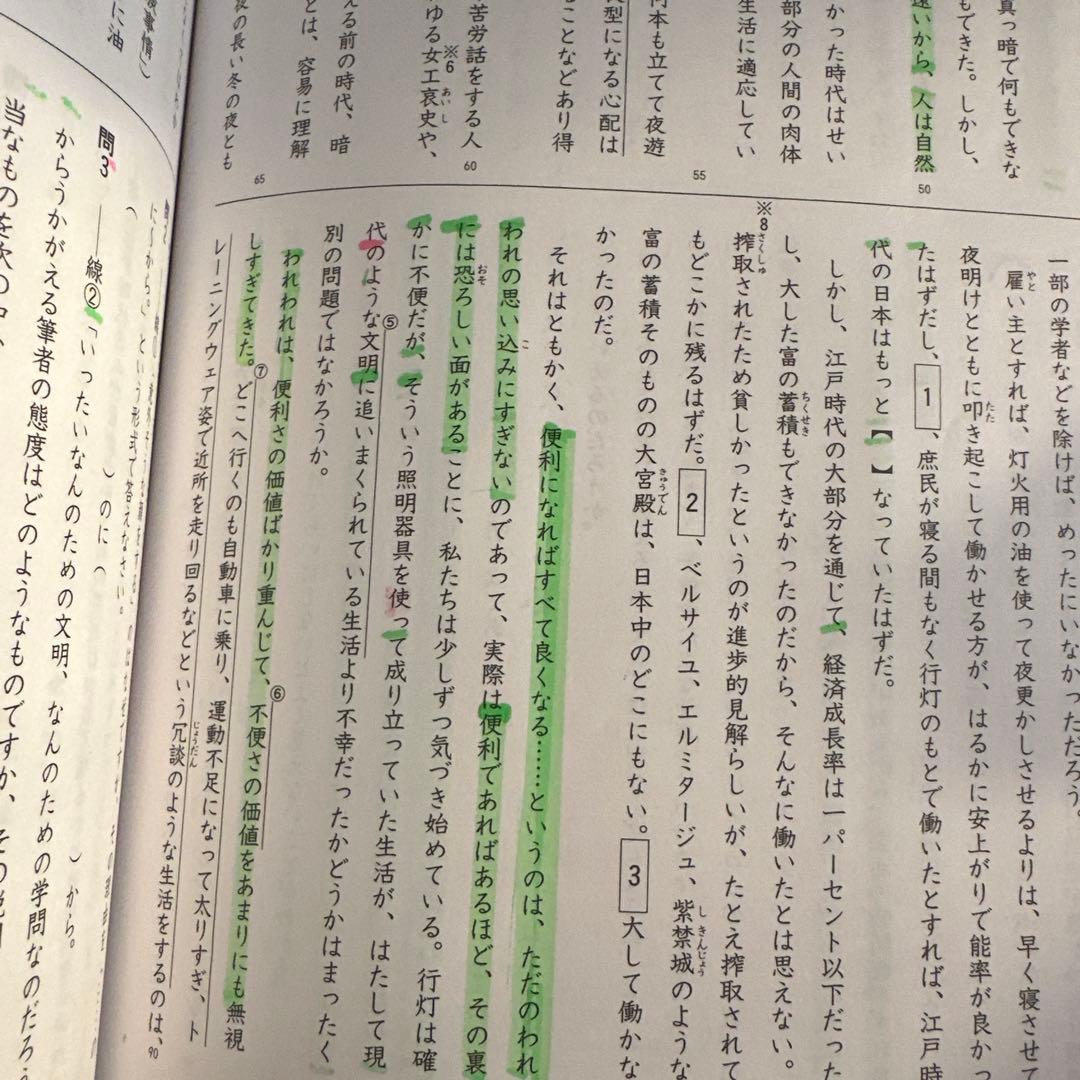 真っ暗で何もできな
もできた。しかし、
速いから、人は自然
50
かった時代はせい
部分の人間の肉体
生活に適応してい
55
何本も立てて夜遊
典型になる心配は
ことなどあり得
苦労話をする人
60
ゆる女工哀史や、
※6
あいし
える前の時代、暗
とは、容易に理解
65
夜の長い冬の夜とも
一部の学者などを除けば、めったにいなかっただろう。
雇い主とすれば、灯火用の油を使って夜更かしさせるよりは、早く寝させて
やと
夜明けとともに叩き起こして働かせる方が、はるかに安上がりで能率が良かっ
たた
たはずだし、1、庶民が寝る間もなく行灯のもとで働いたとすれば、江戸時
代の日本はもっと【 】なっていたはずだ。
しかし、江戸時代の大部分を通じて、経済成長率は一パーセント以下だった
し、大した富の蓄積もできなかったのだから、そんなに働いたとは思えない。
ちくせき
※8
搾取されたため貧しかったというのが進歩的見解らしいが、たとえ搾取されて
さくしゅ
もどこかに残るはずだ。2、ベルサイユ、エルミタージュ、紫禁城のような
しきんじょう
富の蓄積そのものの大宮殿は、日本中のどこにもない。3大して働かな
きゅうでん
かったのだ。
それはともかく、便利になればすべて良くなる……というのは、ただのわれ
われの思い込みにすぎないのであって、実際は便利であればあるほど、その裏
こ
には恐ろしい面があることに、私たちは少しずつ気づき始めている。行灯は確
おそ
かに不便だが、そういう照明器具を使って成り立っていた生活が、はたして現
代のような文明に追いまくられている生活より不幸だったかどうかはまったく
⑤
別の問題ではなかろうか。
われわれは、便利さの価値ばかり重んじて、不便さの価値をあまりにも無視
⑥
しすぎてきた。どこへ行くのも自動車に乗り、運動不足になって太りすぎ、ト
⑦
レーニングウェア姿で近所を走り回るなどという冗談のような生活をするのは、
じょうだん
90
に油
から。」という形式で答えなさい。
( )のに( )から。
問3 ――線②「いったいなんのための文明、なんのための学問なのだろ
からうかがえる筆者の態度はどのようなものですか、その説
当なものを次の中